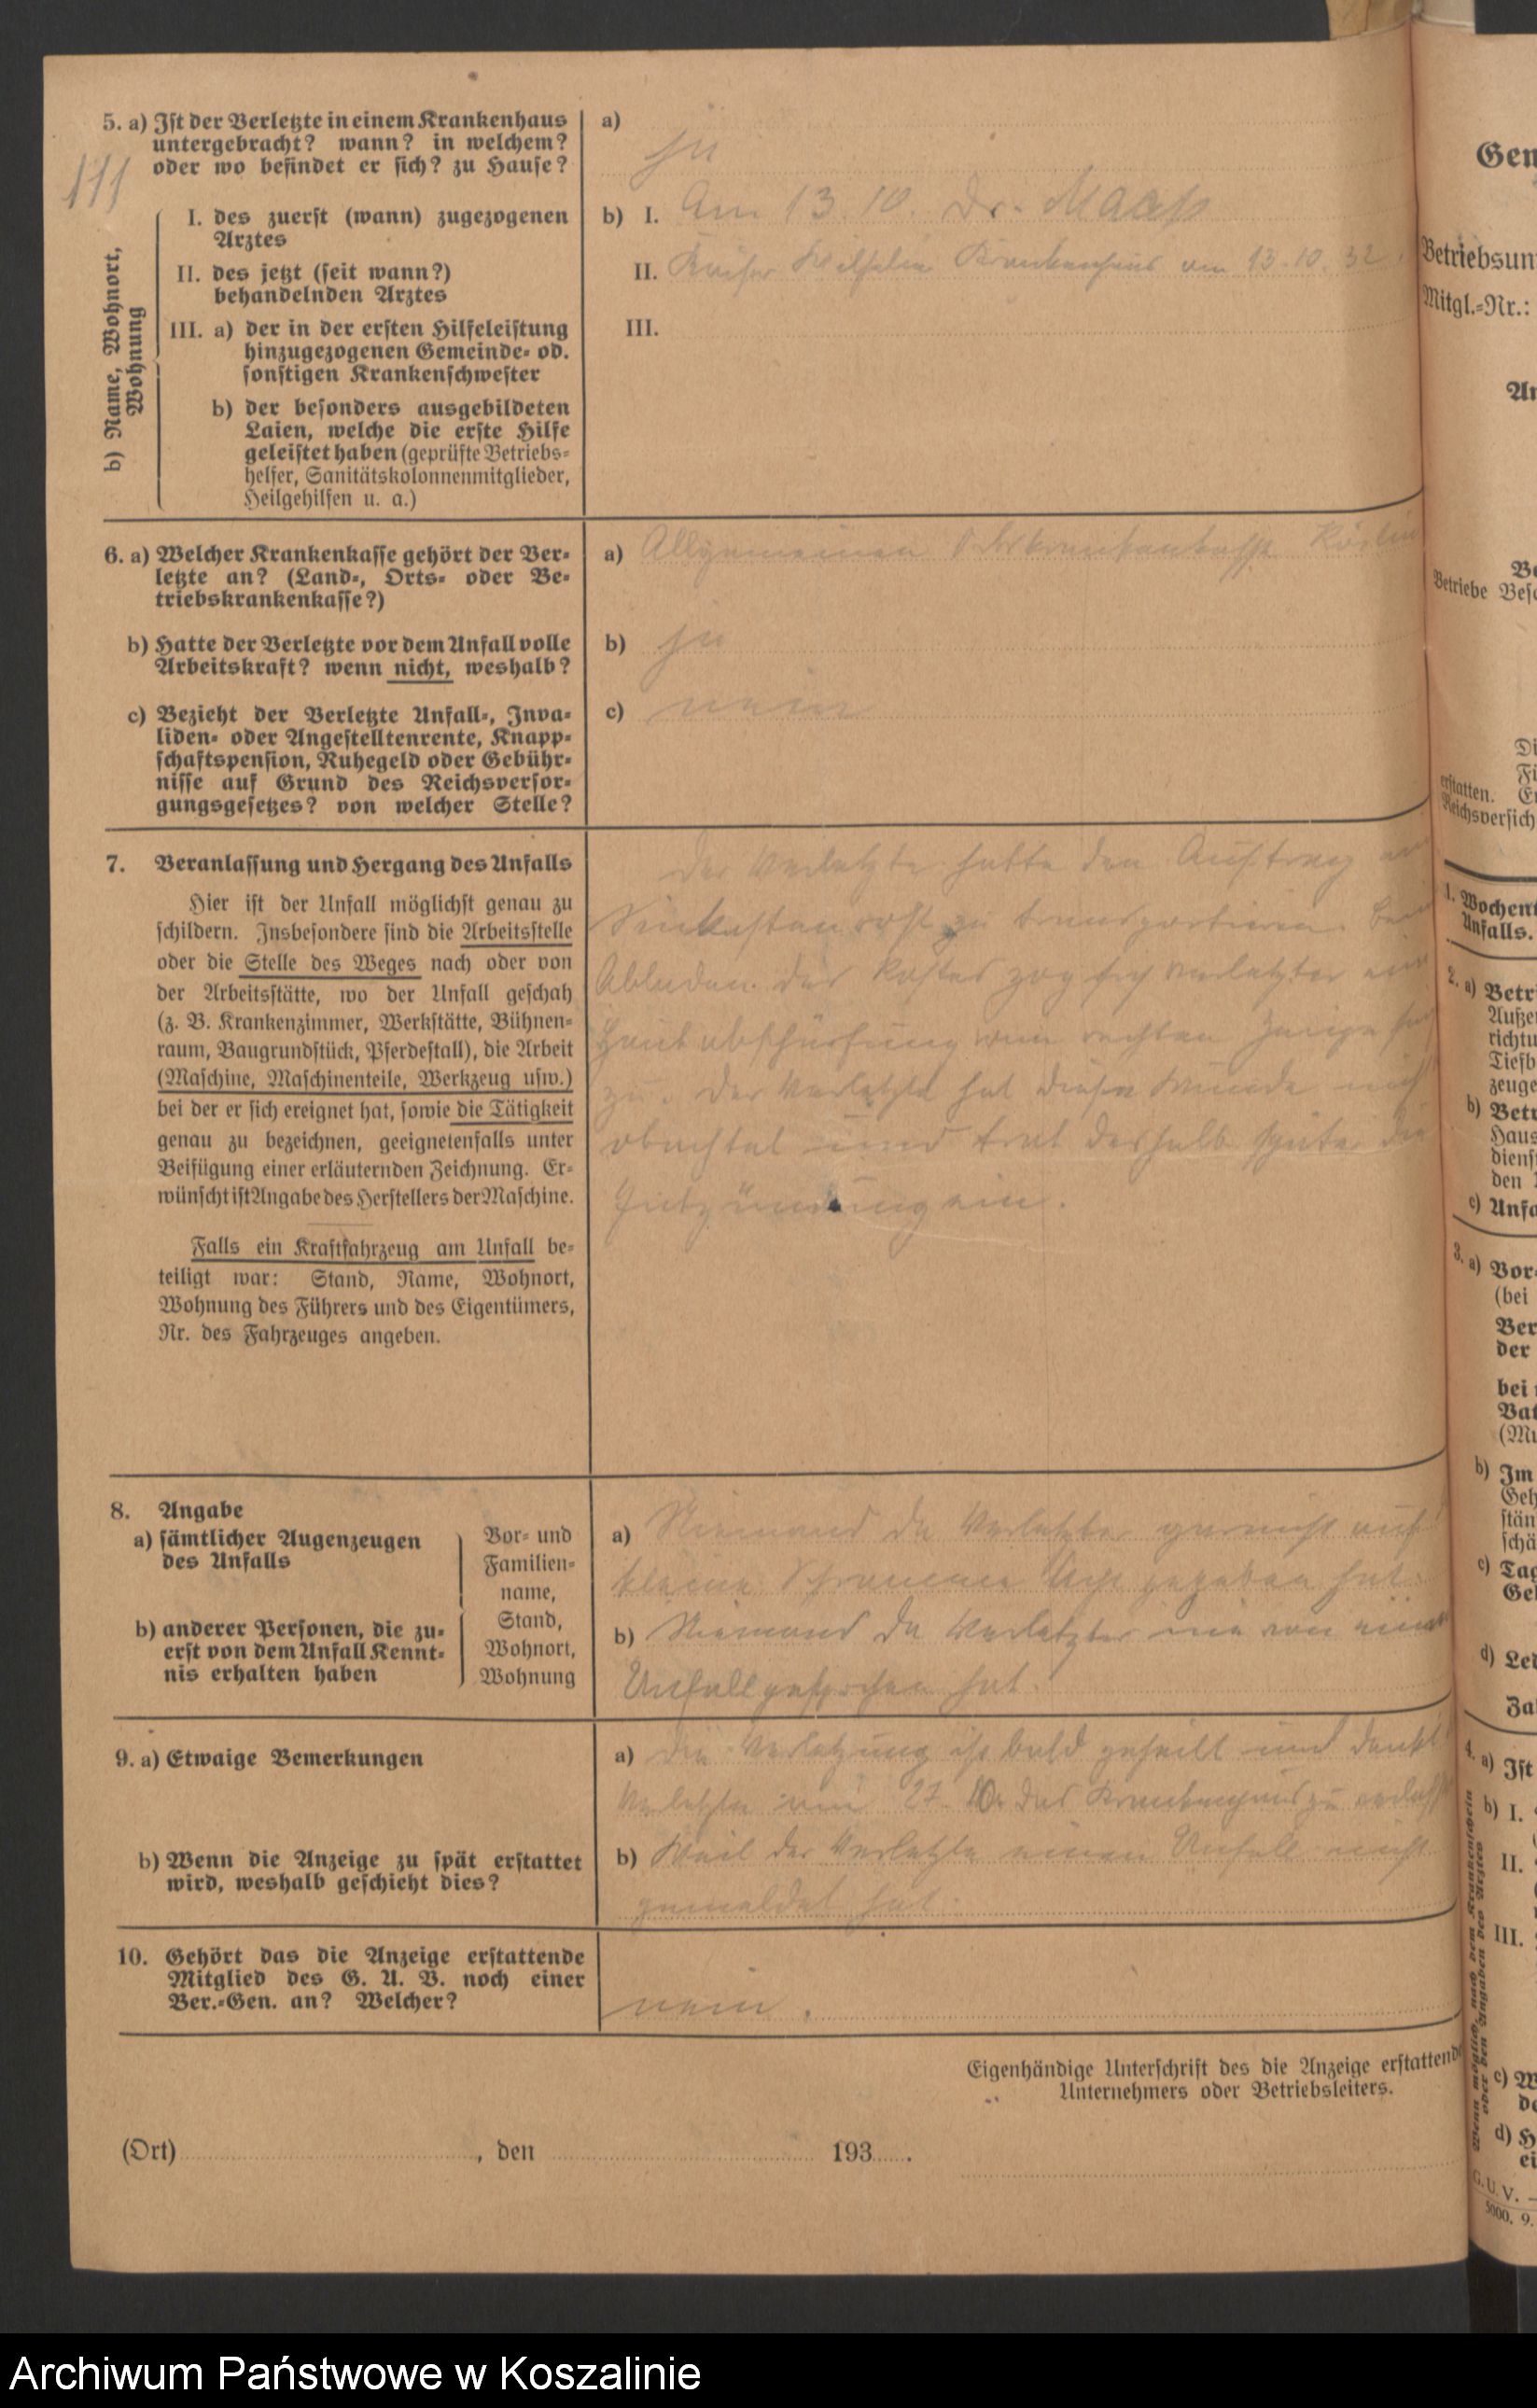 111
5. a) Ist der Verletzte in einem Krankenhaus
untergebracht? wann? in welchem?
oder wo befindet er sich? zu Hause?
a)
ja
b) Name, Wohnort,
Wohnung
I. des zuerst (wann) zugezogenen
Arztes
b) I. Am 13.10. Dr. Maaß
II. des jetzt (seit wann?)
behandelnden Arztes
II. Kaiser Wilhelm Krankenhaus am 13.10.32.
III. a) der in der ersten Hilfeleistung
hinzugezogenen Gemeinde- od.
sonstigen Krankenschwester
III.
b) der besonders ausgebildeten
Laien, welche die erste Hilfe
geleistet haben (geprüfte Betriebs-
helfer, Sanitätskolonnenmitglieder,
Heilgehilfen u. a.)
6. a) Welcher Krankenkasse gehört der Ver-
letzte an? (Land-, Orts- oder Be-
triebskrankenkasse?)
a) Allgemeinen Köslin
b) Hatte der Verletzte vor dem Unfall volle
Arbeitskraft? wenn nicht, weshalb?
b) ja
c) Bezieht der Verletzte Unfall-, Inva-
liden- oder Angestelltenrente, Knapp-
schaftspension, Ruhegeld oder Gebühr-
nisse auf Grund des Reichsversor-
gungsgesetzes? von welcher Stelle?
c) nein
7. Veranlassung und Hergang des Unfalls
Hier ist der Unfall möglichst genau zu
schildern. Insbesondere sind die Arbeitsstelle
oder die Stelle des Weges nach oder von
der Arbeitsstätte, wo der Unfall geschah
(z. B. Krankenzimmer, Werkstätte, Bühnen-
raum, Baugrundstück, Pferdestall), die Arbeit
(Maschine, Maschinenteile, Werkzeug usw.)
bei der er sich ereignet hat, sowie die Tätigkeit
genau zu bezeichnen, geeignetenfalls unter
Beifügung einer erläuternden Zeichnung. Er-
wünscht ist Angabe des Herstellers der Maschine.
Falls ein Kraftfahrzeug am Unfall be-
teiligt war: Stand, Name, Wohnort,
Wohnung des Führers und des Eigentümers,
Nr. des Fahrzeuges angeben.
Der Verletzte hatte den Auftrag
Sinkkastenrost zu transportieren.
Abladen des Rostes zog sich Verletzter
Hautabschürfung am rechten
zu. Der Verletzte hat diese Wunde
obachtet und trat deshalb später die
Entzündung ein.
8. Angabe
a) sämtlicher Augenzeugen
des Unfalls
b) anderer Personen, die zu-
erst von dem Unfall Kennt-
nis erhalten haben
Vor- und
Familien-
name,
Stand,
Wohnort,
Wohnung
a) Niemand da Verletzter garnicht auf
kleine Schramme Acht gegeben hat.
b) Niemand da Verletzter nie von einem
Unfall gesprochen hat.
9. a) Etwaige Bemerkungen
a) Die Verletzung ist bald geheilt und denkt
Verletzte am 27. 10. das Krankenhaus zu
b) Wenn die Anzeige zu spät erstattet
wird, weshalb geschieht dies?
b) Weil der Verletzte einen Unfall nicht
gemeldet hat.
10. Gehört das die Anzeige erstattende
Mitglied des G. U. V. noch einer
Ber.-Gen. an? Welcher?
nein.
Eigenhändige Unterschrift des die Anzeige erstattend
Unternehmers oder Betriebsleiters.
(Ort) , den 193 .
Gem
Betriebsun
Mitgl.-Nr.:
Betriebe
erstatten.
Reichsversich
1. Wochent
Unfalls.
2. a) Betri
b) Betr
c) Unfa
3. a) Vor-
(bei
Ver
der
bei
b) Im
c) Tag
d) Le
Za
4. a) Ist
b) I.
II.
III.
Wenn möglich nach dem Krankenschein
oder den Angaben des Arztes
c)
d)
G. U. V. –
5000. 9.
Archiwum Państwowe w Koszalinie